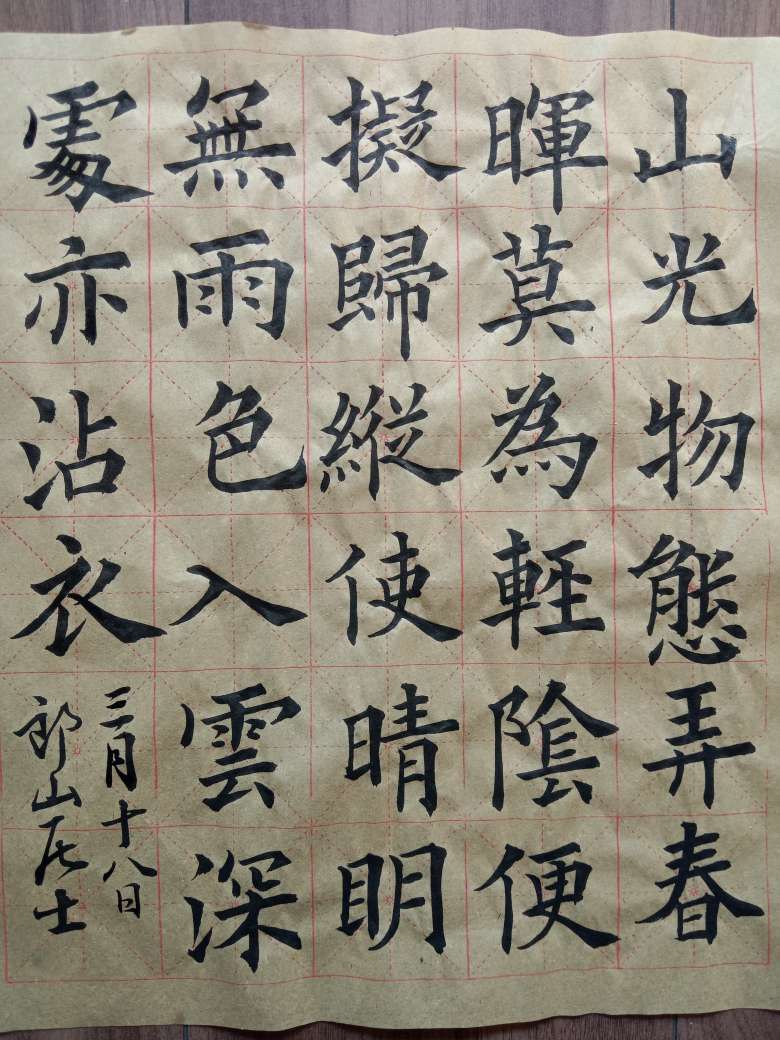 山光物態弄春
暉莫為輕陰便
擬歸縱使晴明
無雨色入雲深
處亦沾衣
三月十八日
郎山居士